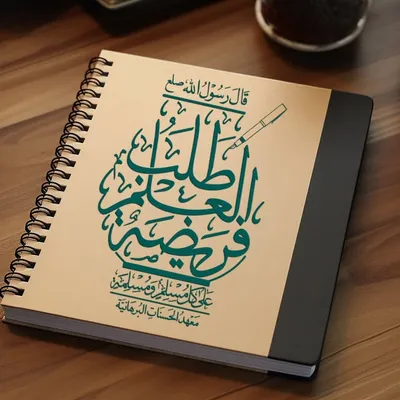 قَالَ رَسُوْلُ اللّٰه صلعم
طَلَبُ
الْعِلْمِ
فَرِيْضَةٌ
عَلَى كُلِّ مُسْلِمٍ وَمُسْلِمَةٍ
مَعْهَدُ الْحَسَنَاتِ الْبُرْهَانِيَّة